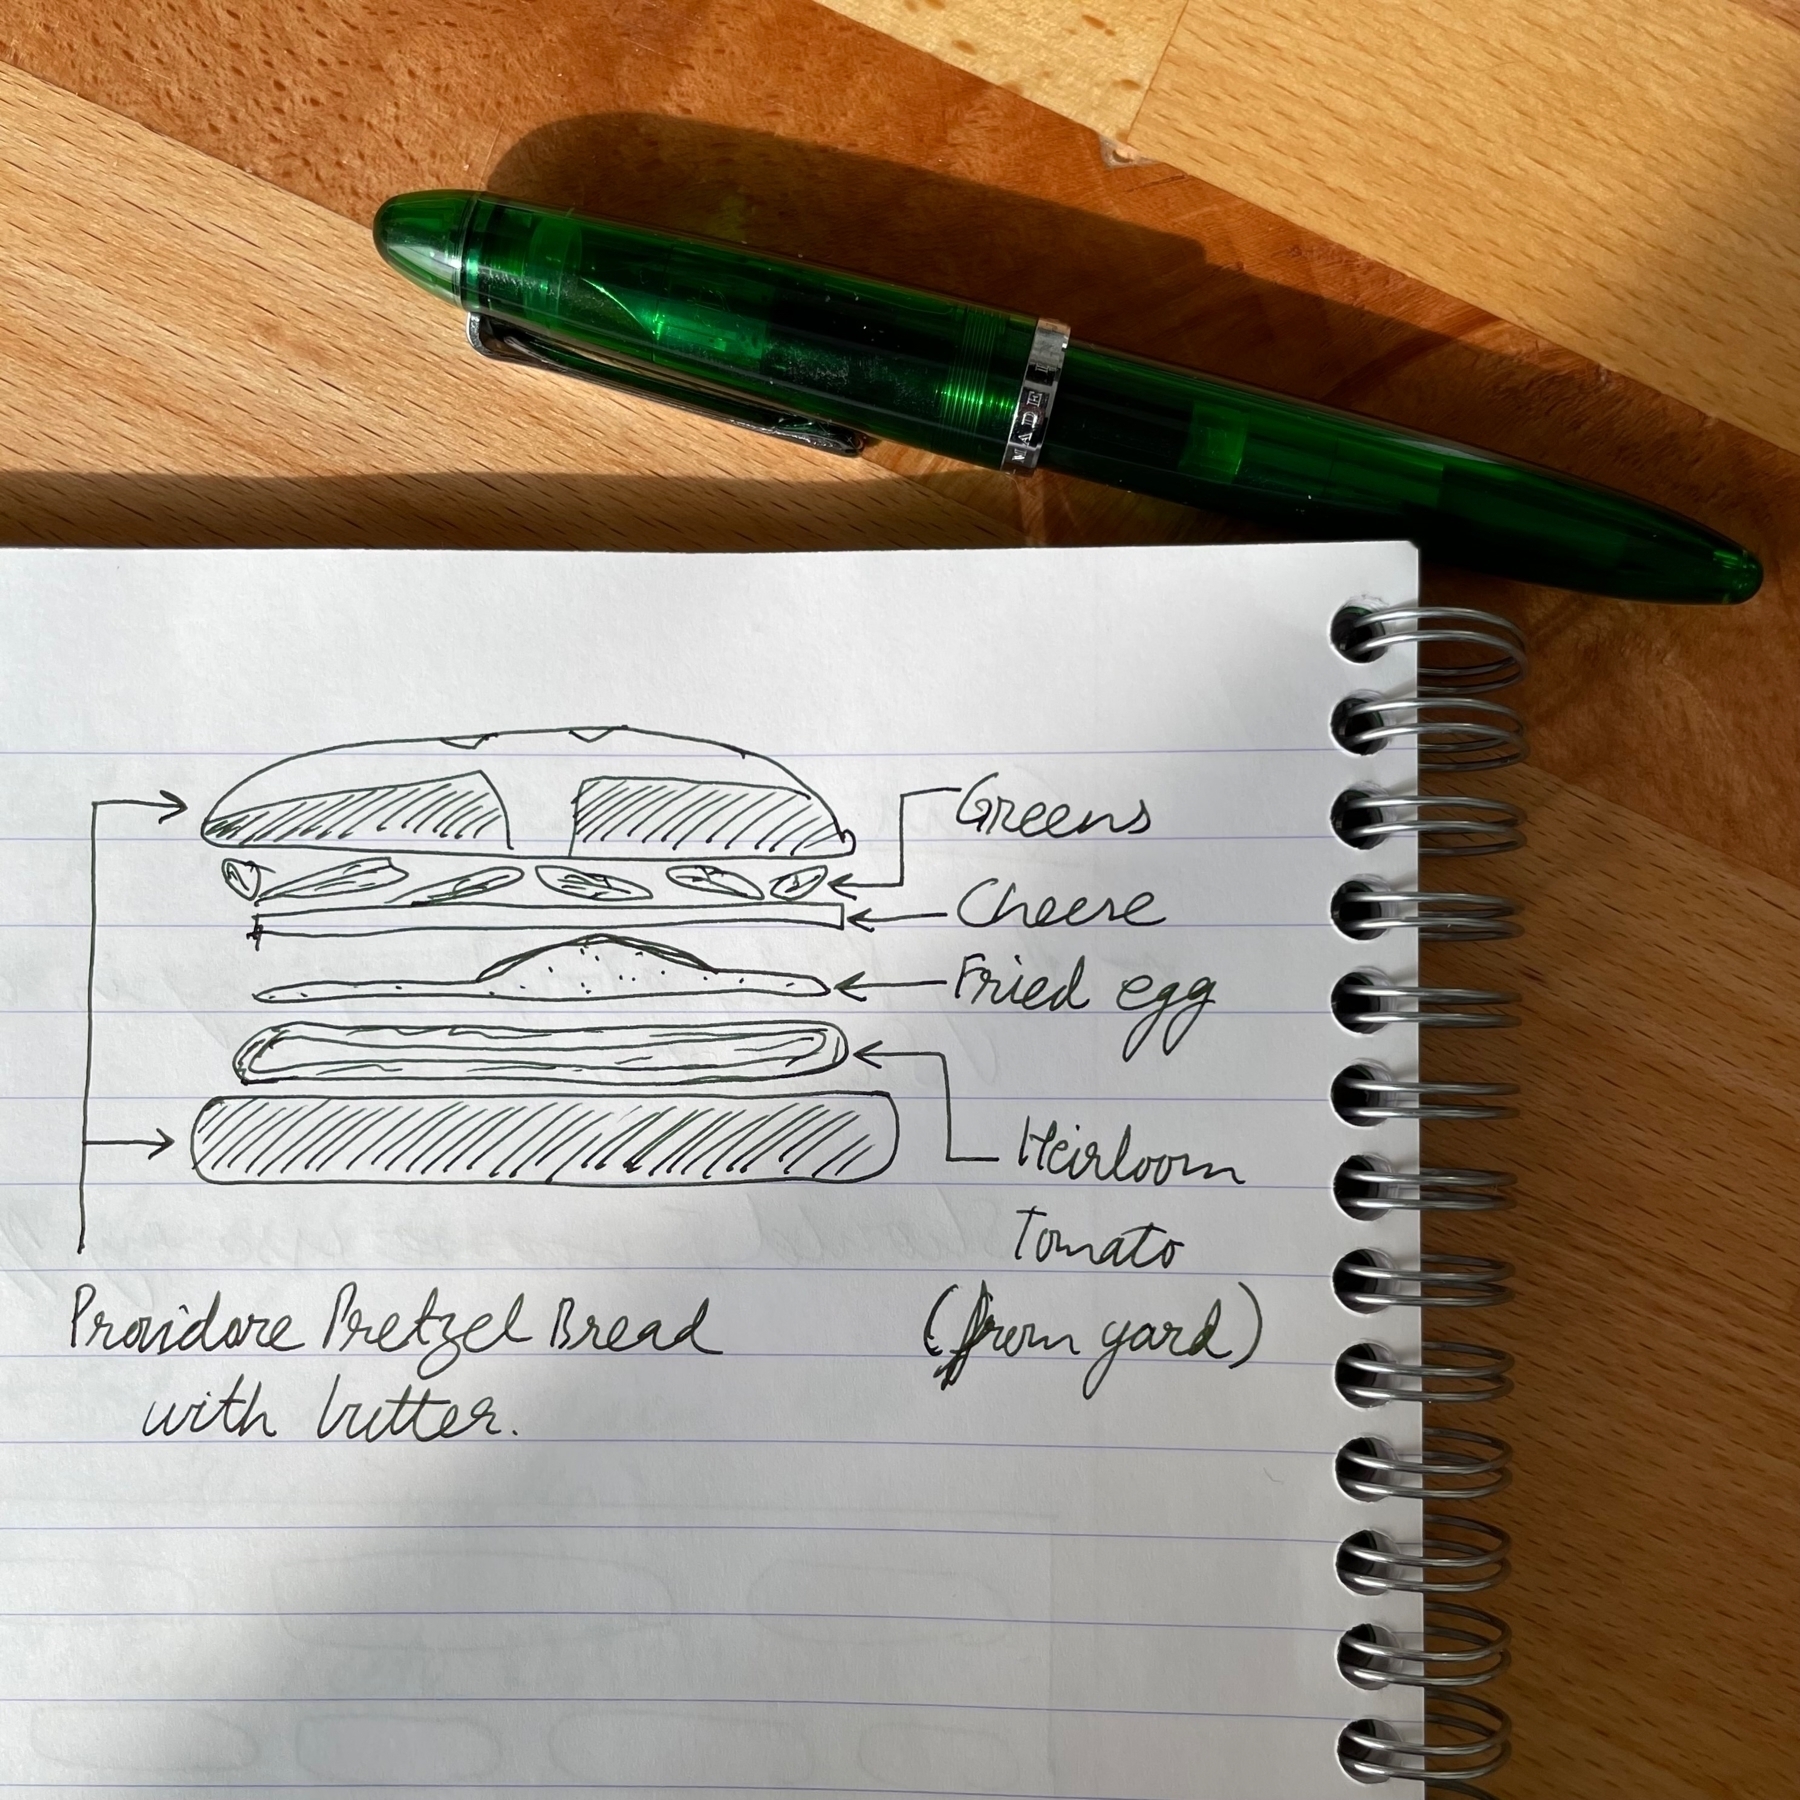 MADE I
Greens
Cheese
Fried egg
Heirloom
Tomato
(from yard)
Providore Pretzel Bread
with butter.